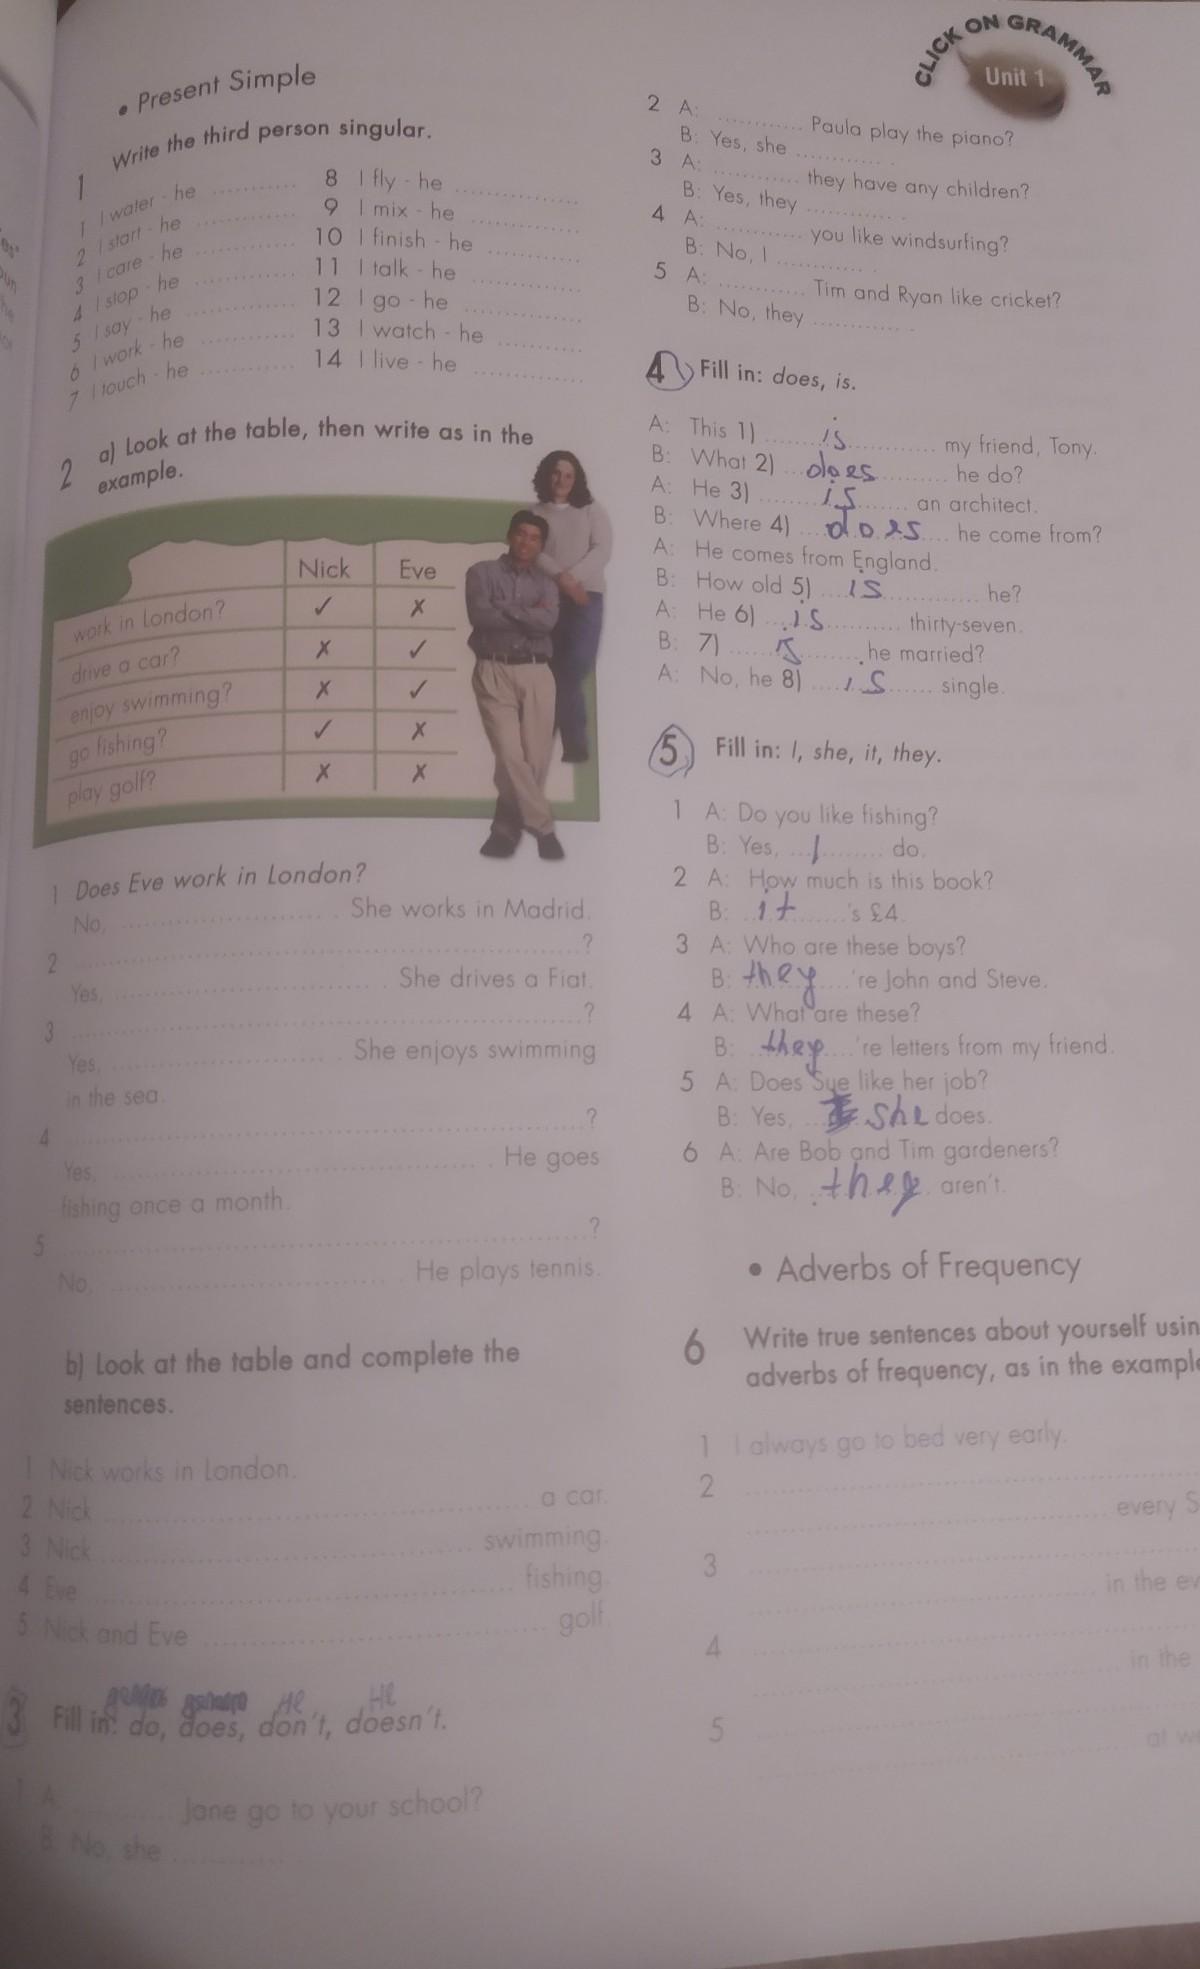 • Present Simple
1 Write the third person singular.
1 I water - he ............
2 I start - he ............
3 I care - he ............
4 I stop - he ............
5 I say - he ............
6 I work - he ............
7 I touch - he ............
8 I fly - he ............
9 I mix - he ............
10 I finish - he ............
11 I talk - he ............
12 I go - he ............
13 I watch - he ............
14 I live - he ............
2 a) Look at the table, then write as in the
example.
Nick Eve
work in London? ✓ ✗
drive a car? ✗ ✓
enjoy swimming? ✗ ✓
go fishing? ✓ ✗
play golf? ✗ ✗
1 Does Eve work in London?
No, ............ . She works in Madrid.
2 ............?
Yes, ............ . She drives a Fiat.
3 ............?
Yes, ............ . She enjoys swimming
in the sea.
4 ............?
Yes, ............ . He goes
fishing once a month.
5 ............?
No, ............ . He plays tennis.
b) Look at the table and complete the
sentences.
1 Nick works in London.
2 Nick ............ a car.
3 Nick ............ swimming.
4 Eve ............ fishing.
5 Nick and Eve ............ golf.
не не
3 Fill in: do, does, don't, doesn't.
1 A: ............ Jane go to your school?
B: No, she ............
CLICK ON GRAMMAR
Unit 1
2 A: ............ Paula play the piano?
B: Yes, she ............ .
3 A: ............ they have any children?
B: Yes, they ............ .
4 A: ............ you like windsurfing?
B: No, I ............ .
5 A: ............ Tim and Ryan like cricket?
B: No, they ............ .
4 Fill in: does, is.
A: This 1) is my friend, Tony.
B: What 2) does he do?
A: He 3) is an architect.
B: Where 4) does he come from?
A: He comes from England.
B: How old 5) is he?
A: He 6) is thirty-seven.
B: 7) is he married?
A: No, he 8) is single.
5 Fill in: I, she, it, they.
1 A: Do you like fishing?
B: Yes, I do.
2 A: How much is this book?
B: it 's £4.
3 A: Who are these boys?
B: they 're John and Steve.
4 A: What are these?
B: they 're letters from my friend.
5 A: Does Sue like her job?
B: Yes, she does.
6 A: Are Bob and Tim gardeners?
B: No, they aren't.
• Adverbs of Frequency
6 Write true sentences about yourself usin
adverbs of frequency, as in the example
1 I always go to bed very early.
2 ............
............ every S
3 ............
............ in the ev
4 ............
............ in the
5 ............
............ at we